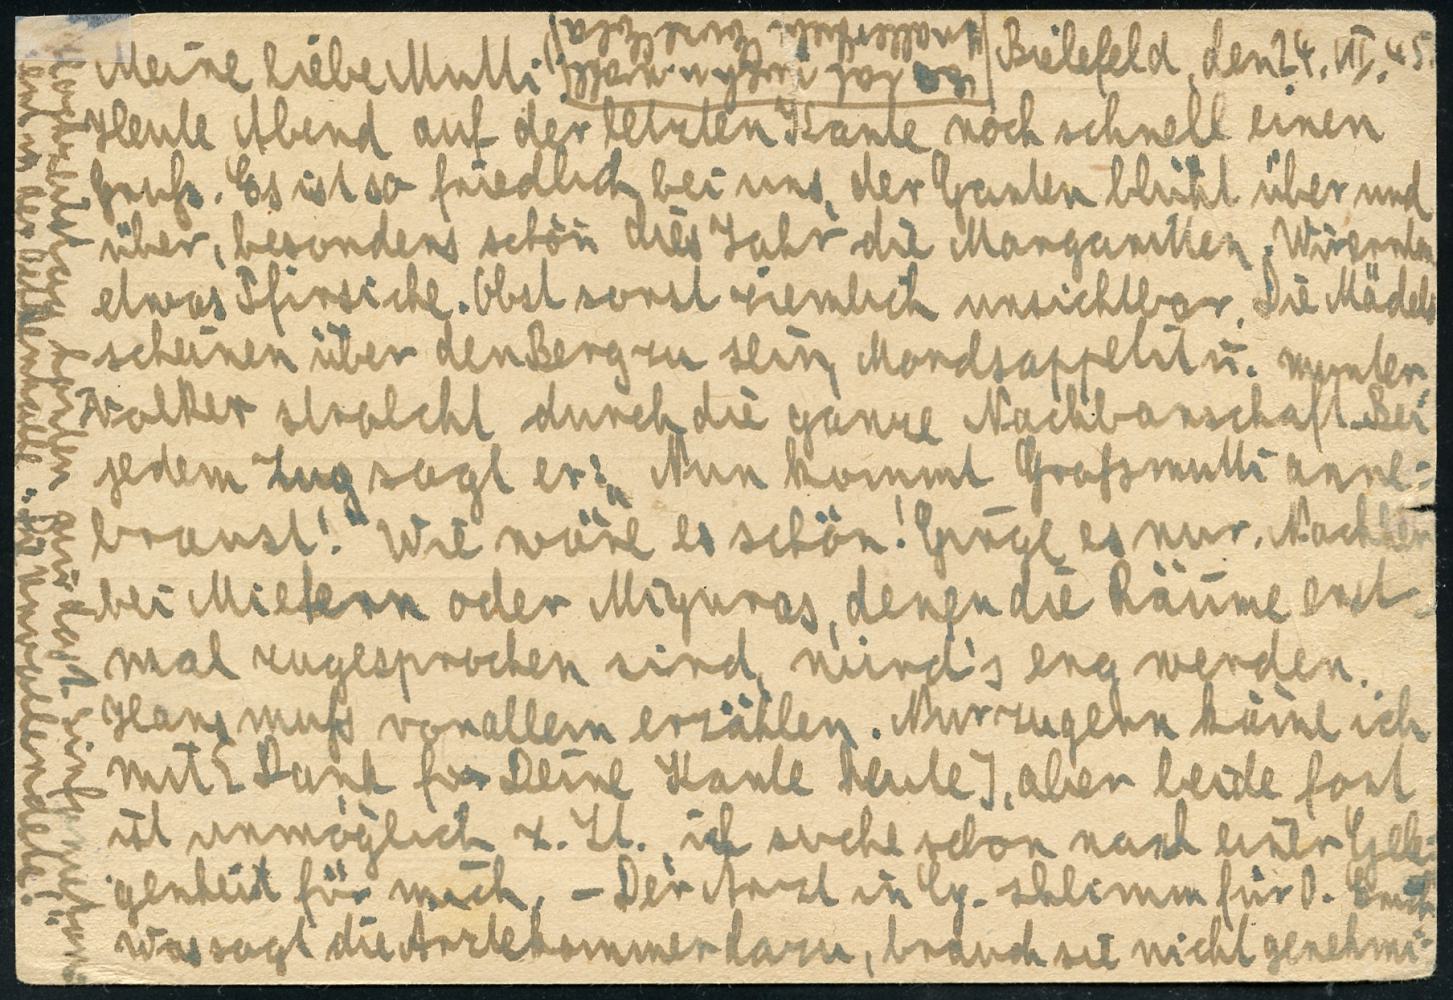 Bielefeld, den 24. VII. 45.
Meine liebe Mutti!
Heute Abend auf der letzten Karte noch schnell einen
Gruß. Es ist so friedlich bei uns, der Garten blüht über und
über, besonders schön dies Jahr die Margaritten. Wir ernten
etwas Pfirsiche. Obst sonst ziemlich unsichtbar. Die Mädels
scheinen über den Berg zu sein, Mordsappetit u. munter.
Volker strolcht durch die ganze Nachbarschaft. Bei
jedem Zug sagt er: „Nun kommt Großmutti ange-
braust!" Wie wäre es schön! Ginge es nur. Nachher
bei Mietern oder Miquras, denen die Räume erst-
mal zugesprochen sind, würd's eng werden.
Hans muß vor allem erzählen. Nur zu gern käme ich
mit [Dank für Deine Karte heute], aber beide fort
ist unmöglich z. Zt. ich suche schon nach einer Gele-
genheit für mich. – Der Arzt in Cy. schlimm für O.
Was sagt die Ärztekammer dazu, brauch sie nicht genehmi-